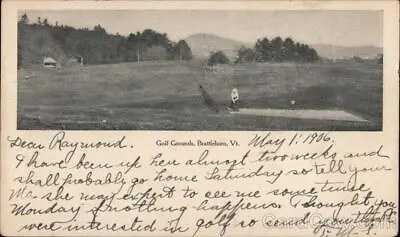 Golf Grounds, Brattleboro, Vt.
May 1, 1906.
Dear Raymond.
I have been up her almost two weeks and
shall probably go home Saturday so tell your
Ma she may expect to see me sometime
Monday if nothing happens. I thought you
were interested in golf so send you this